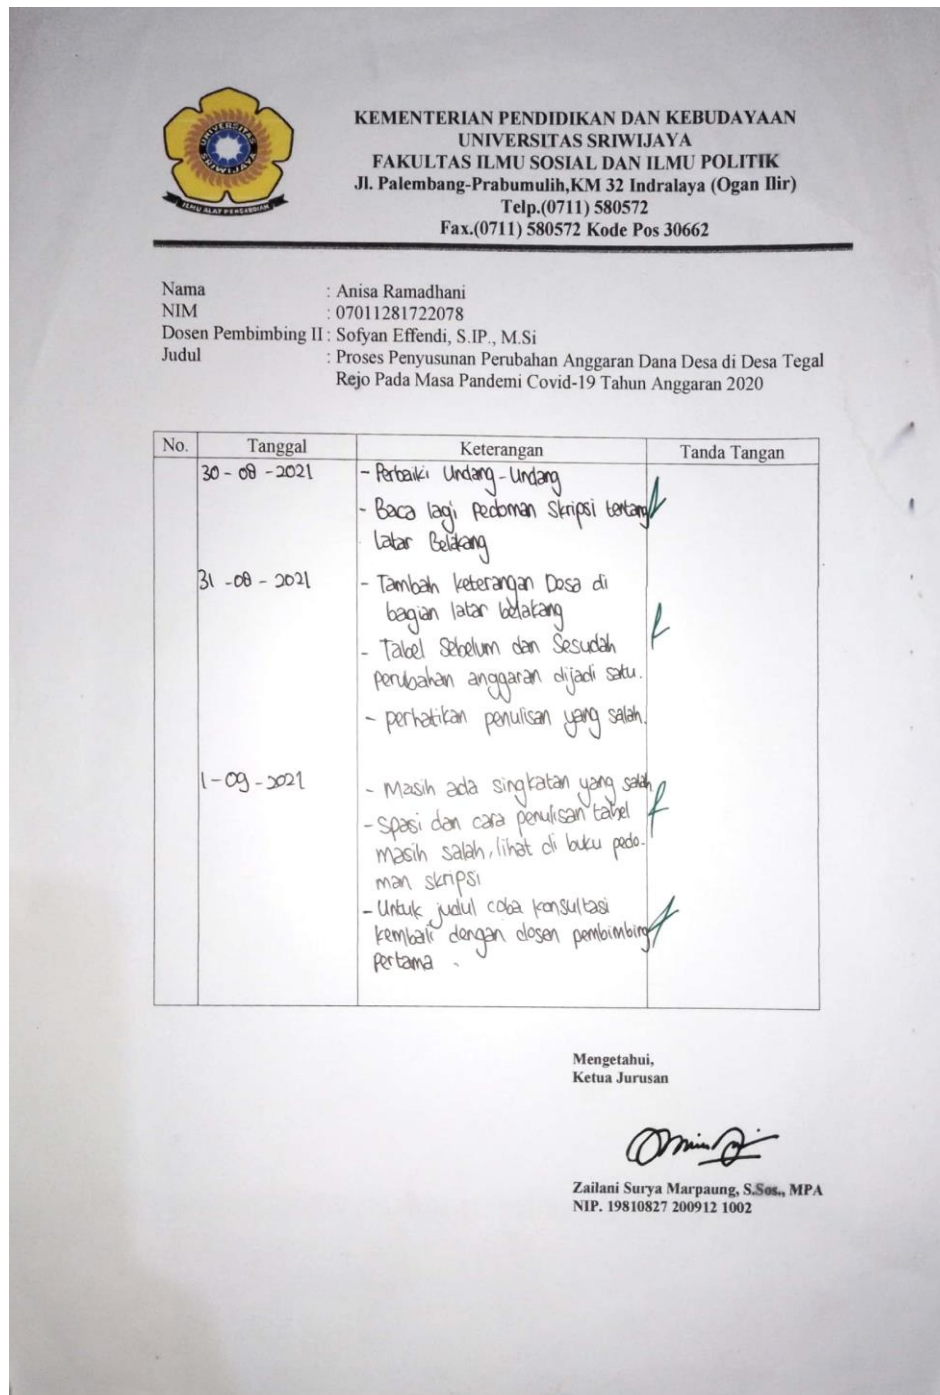 UNIVERSITAS
SRIWIJAYA
ILMU ALAT PENGABDIAN
KEMENTERIAN PENDIDIKAN DAN KEBUDAYAAN
UNIVERSITAS SRIWIJAYA
FAKULTAS ILMU SOSIAL DAN ILMU POLITIK
Jl. Palembang-Prabumulih,KM 32 Indralaya (Ogan Ilir)
Telp.(0711) 580572
Fax.(0711) 580572 Kode Pos 30662
Nama : Anisa Ramadhani
NIM : 07011281722078
Dosen Pembimbing II : Sofyan Effendi, S.IP., M.Si
Judul : Proses Penyusunan Perubahan Anggaran Dana Desa di Desa Tegal
Rejo Pada Masa Pandemi Covid-19 Tahun Anggaran 2020
No. Tanggal Keterangan Tanda Tangan
30-08-2021 - Perbaiki Undang-Undang
- Baca lagi Pedoman Skripsi tentang
latar Belakang
31-08-2021 - Tambah keterangan Desa di
bagian latar belakang
- Tabel Sebelum dan Sesudah
perubahan anggaran dijadi satu.
- perhatikan penulisan yang salah.
1-09-2021 - Masih ada singkatan yang salah
- Spasi dan cara penulisan tabel
masih salah, lihat di buku pedo-
man skripsi
- Untuk judul coba konsultasi
kembali dengan dosen pembimbing
Pertama .
Mengetahui,
Ketua Jurusan
Zailani Surya Marpaung, S.Sos., MPA
NIP. 19810827 200912 1002